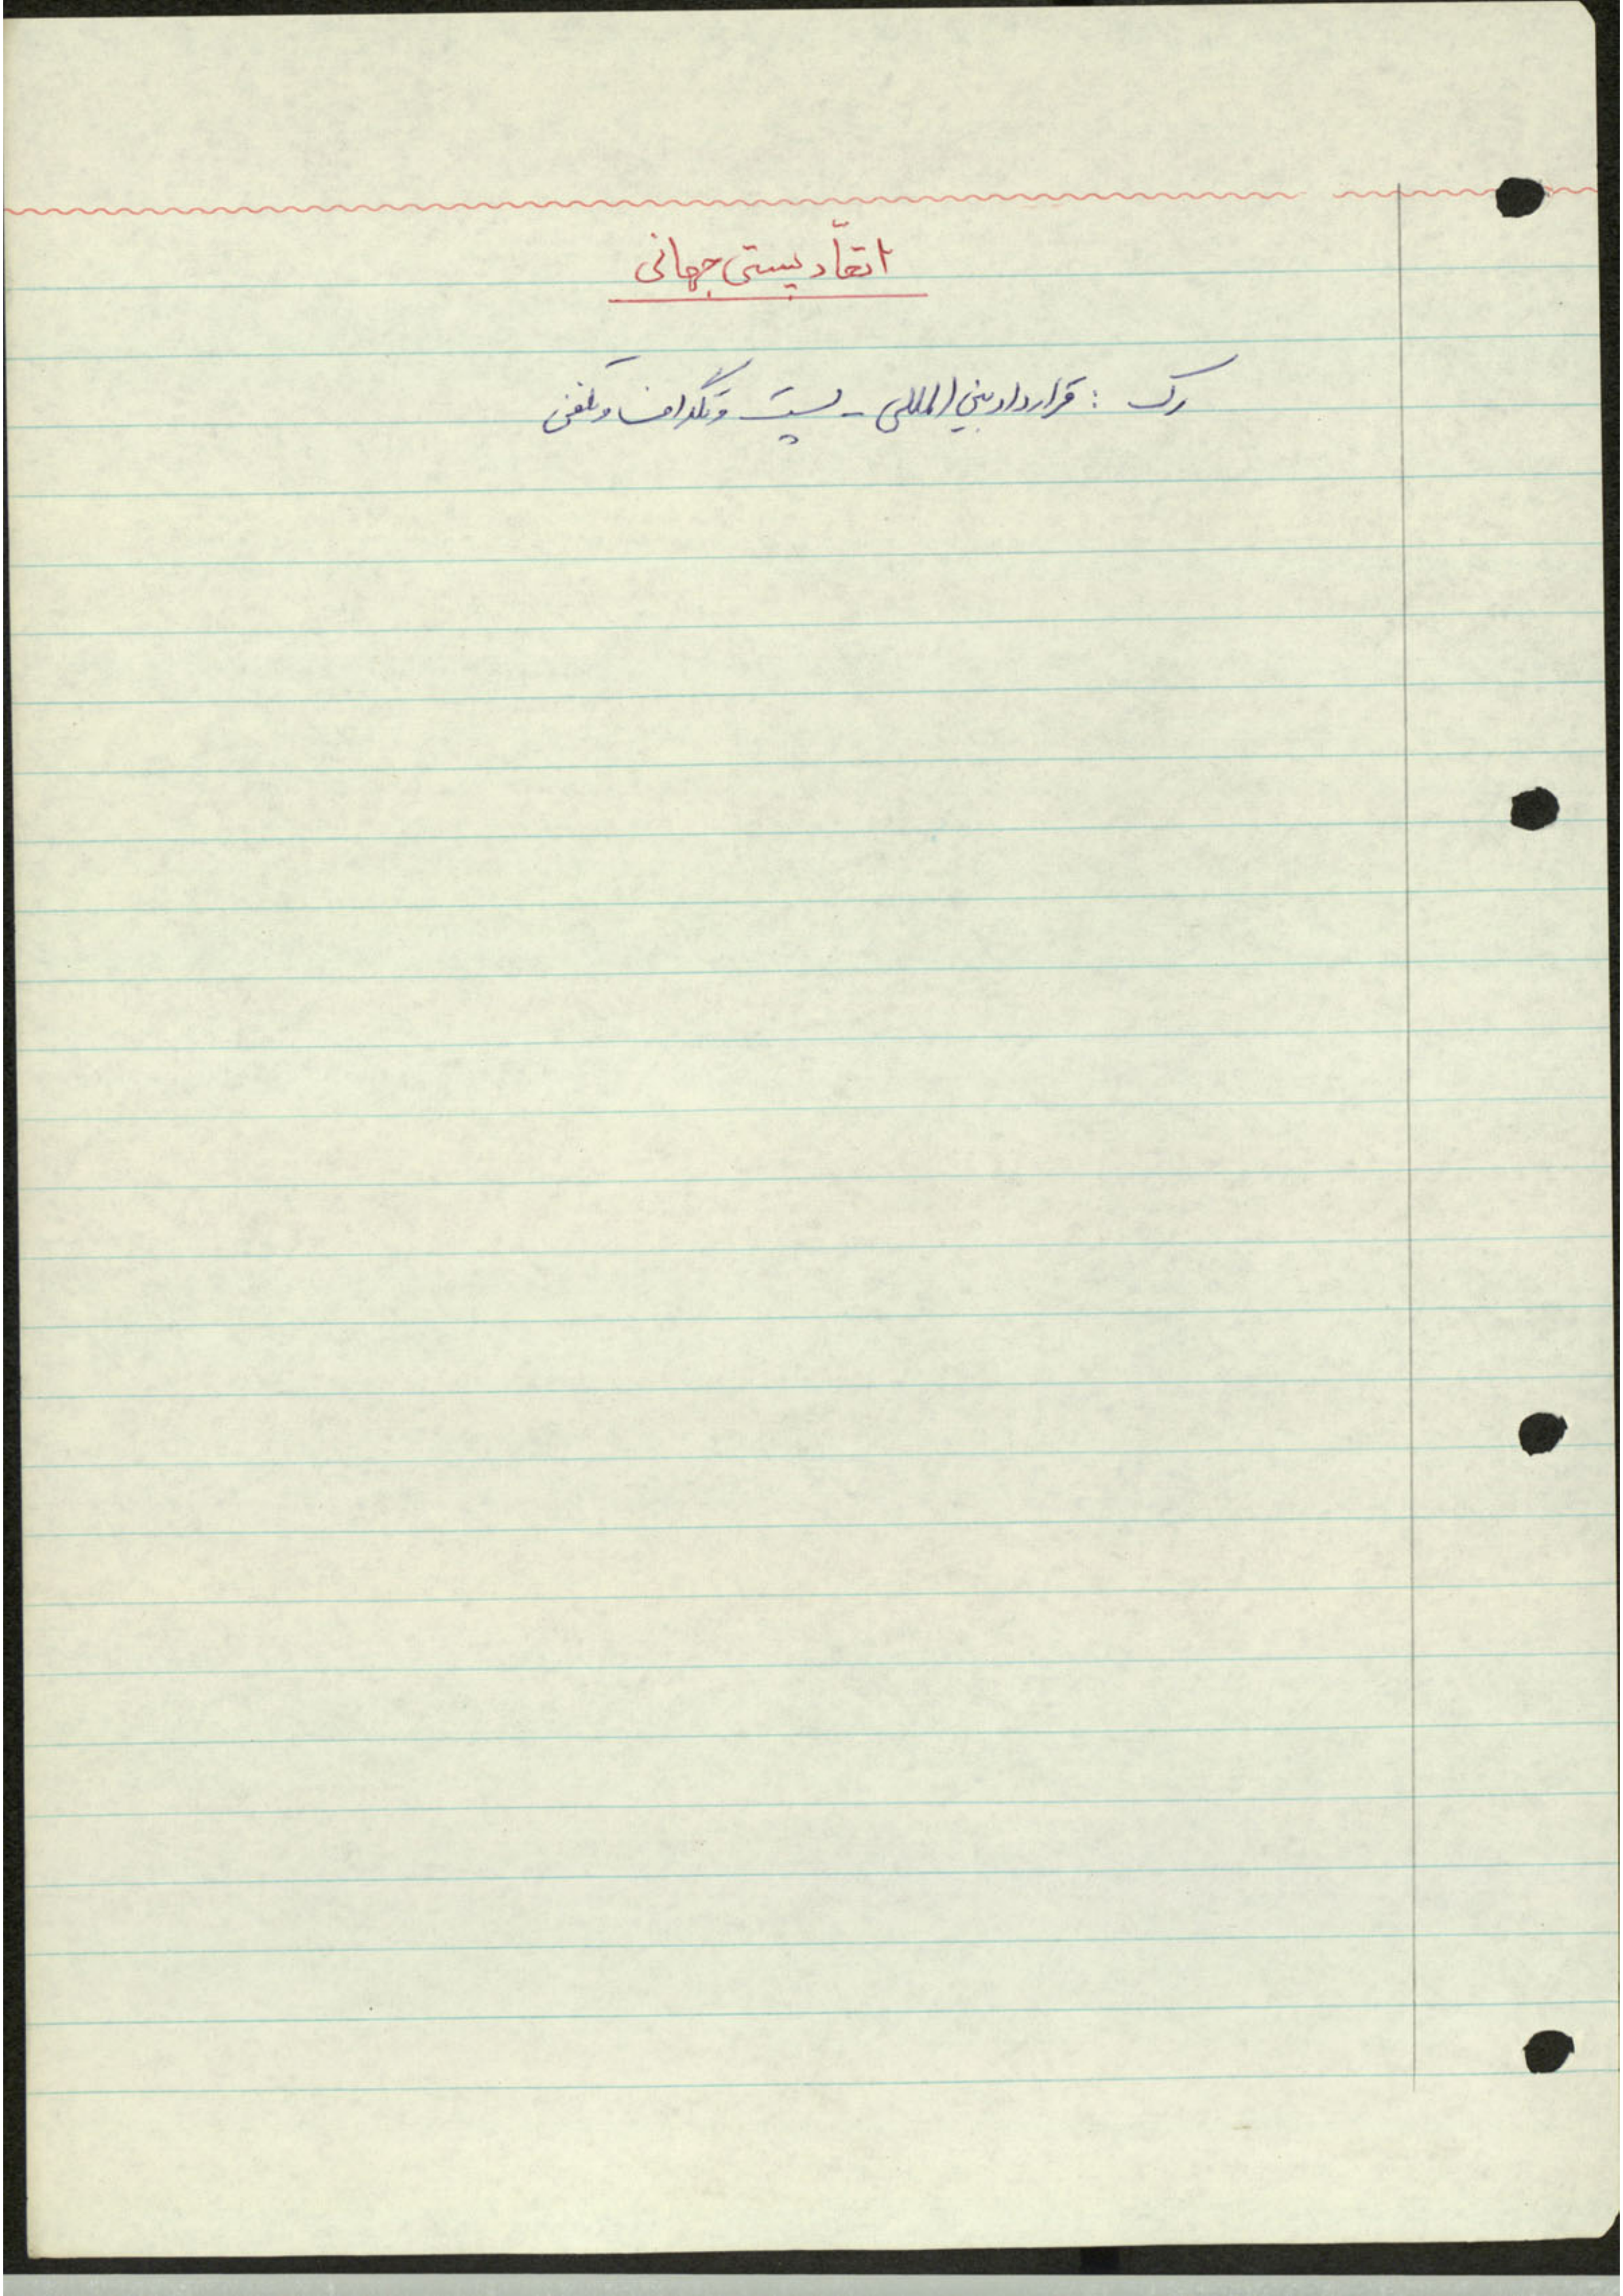 اتحّاد پستی جهانی
رک : قرارداد بین المللی - پست و تلگراف و تلفن